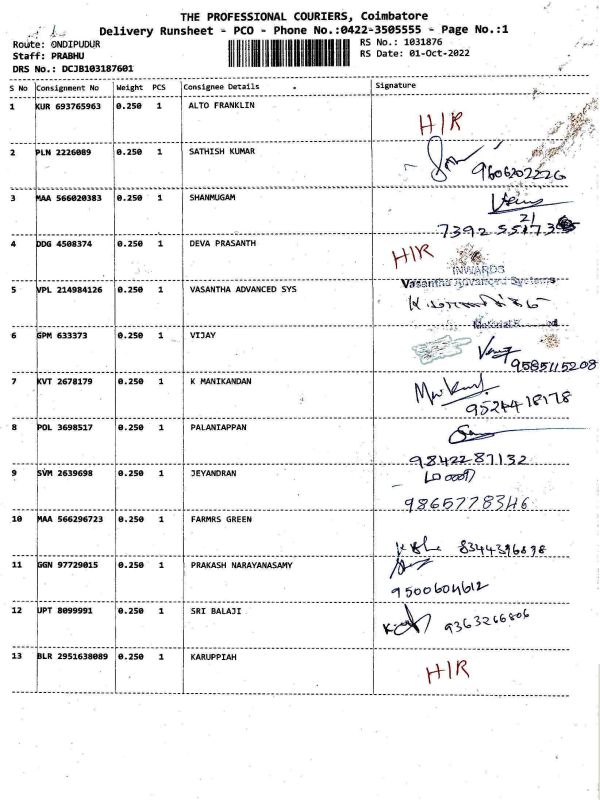 THE PROFESSIONAL COURIERS, Coimbatore
Delivery Runsheet - PCO - Phone No.:0422-3505555 - Page No.:1
Route: ONDIPUDUR
RS No.: 1031876
Staff: PRABHU
RS Date: 01-Oct-2022
DRS No.: DCJB103187601
S No Consignment No Weight PCS Consignee Details Signature
1 KUR 693765963 0.250 1 ALTO FRANKLIN
H/R
2 PLN 2226089 0.250 1 SATHISH KUMAR
9606202226
3 MAA 566020383 0.250 1 SHANMUGAM
21
4 DDG 4508374 0.250 1 DEVA PRASANTH
H/R
INWARDS
5 VPL 214984126 0.250 1 VASANTHA ADVANCED SYS
Vasantha Advanced Systems
6 GPM 633373 0.250 1 VIJAY
9585115208
7 KVT 2678179 0.250 1 K MANIKANDAN
9524418178
8 POL 3698517 0.250 1 PALANIAPPAN
9842287132
9 SVM 2639698 0.250 1 JEYANDRAN
மணி
9865778346
10 MAA 566296723 0.250 1 FARMRS GREEN
8344396898
11 GGN 97729015 0.250 1 PRAKASH NARAYANASAMY
9500604612
12 UPT 8099991 0.250 1 SRI BALAJI
9363266806
13 BLR 2951638089 0.250 1 KARUPPIAH
H/R